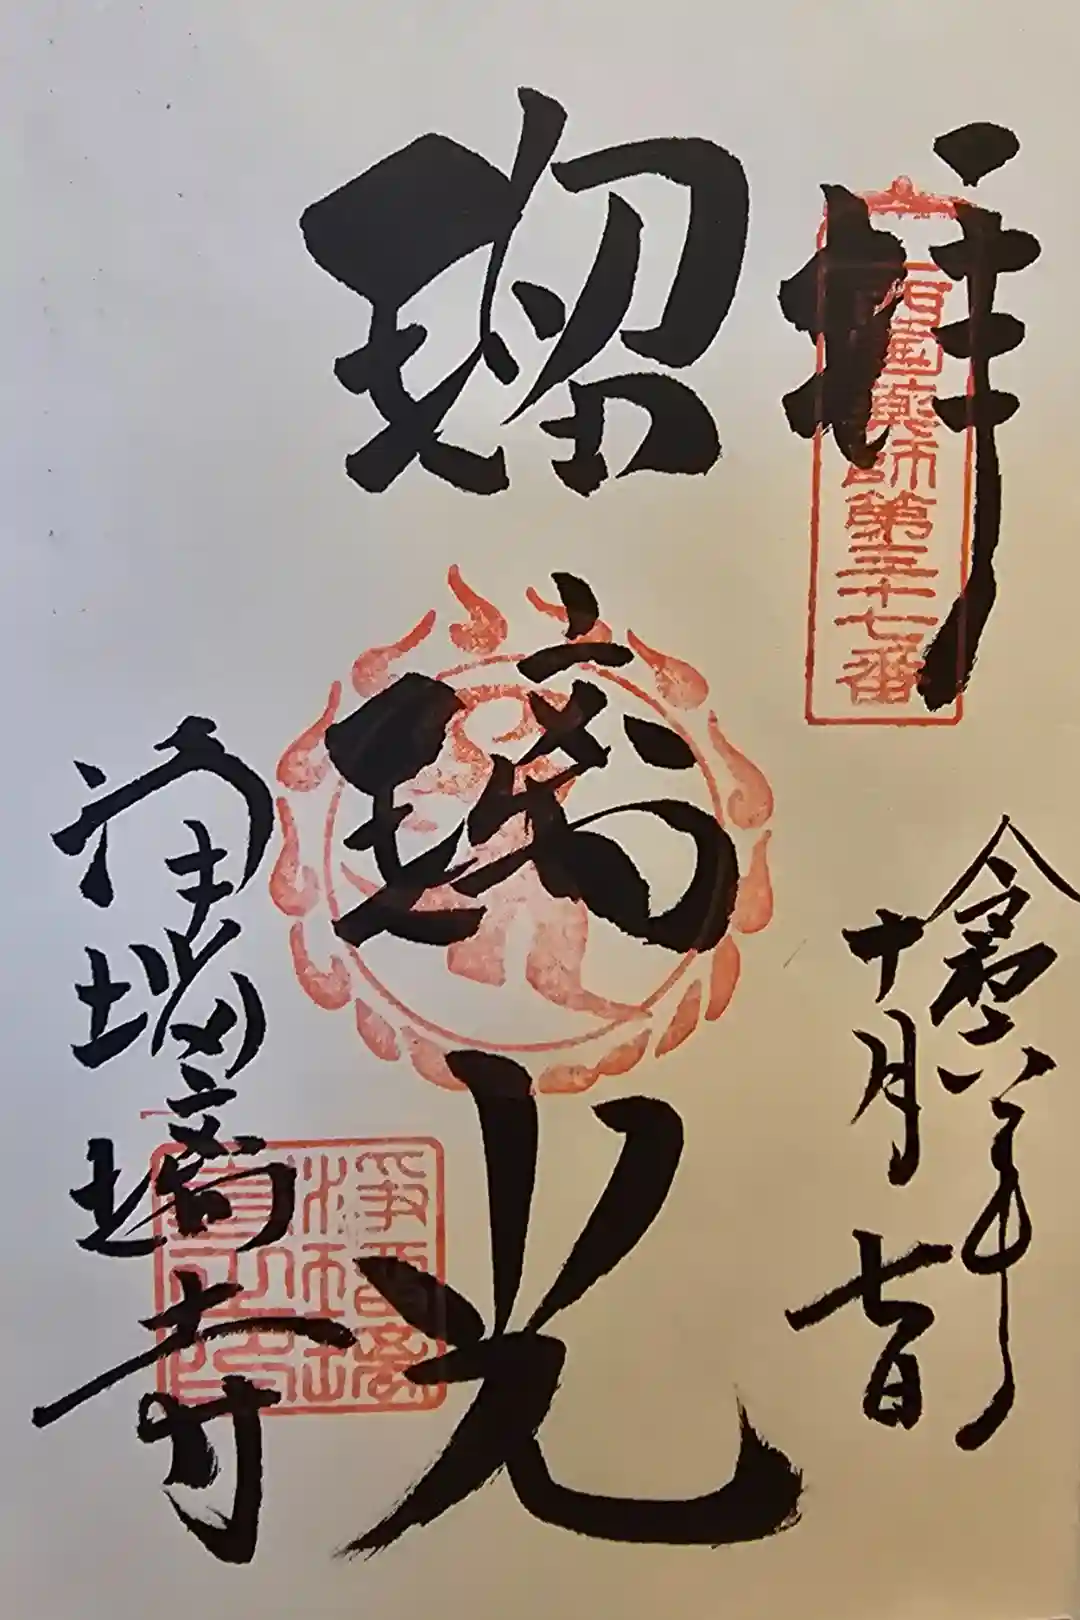 拝
西國薬師第三十七番
令和六年
十月七日
瑠璃光
浄瑠璃寺